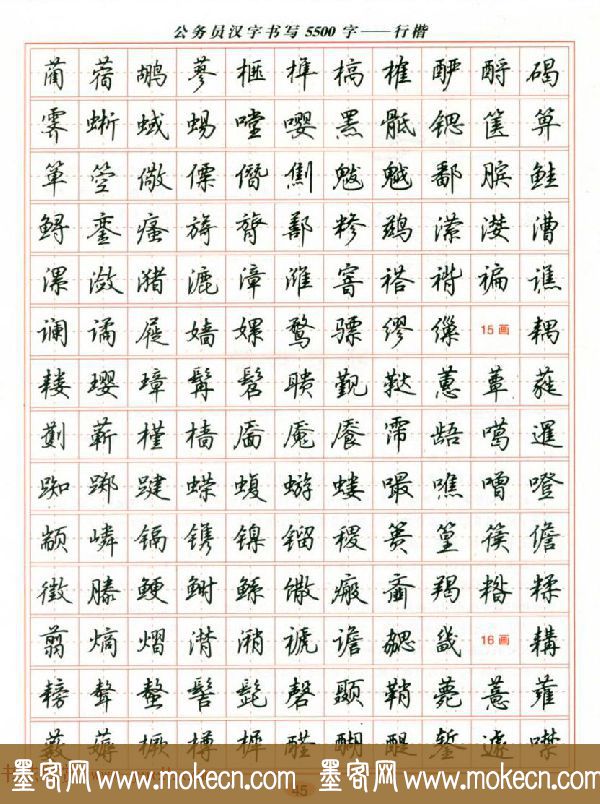 公务员汉字书写5500字——行楷
蔺 蓿 鹕 蓼 榧 榫 槁 榷 酽 酹 碣
霁 蜥 蜮 蜴 嘡 嘤 罴 骶 锶 箧 箅
箪 箜 儆 僳 僭 劁 魃 魆 鄱 膑 鲑
鲟 銮 瘙 旖 膂 鄯 糁 鹚 潆 漕
漯 潋 潴 漉 漳 潍 窨 褡 褙 褊 谯
谰 谲 屣 嫱 嫘 骛 骠 缪 缫 15画 耦
耧 璎 璋 髯 髫 聩 觐 鞑 蕙 蕈 蕤
蕲 槿 樯 靥 魇 餍 霈 龉 噶 暹
踟 踯 踺 蝾 蝮 蝣 蝼 嘬 噍 噌 噔
颛 嶙 镉 镌 镍 镏 稷 箦 篁 篌 儋
徵 滕 鲠 鲥 馓 瘢 齑 羯 糌 糅
翦 熵 熠 潸 潲 褫 谵 勰 畿 16画 耩
耪 聱 螯 髻 髭 磬 颞 鞘 薨 薏 薤
薮 薅 橛 樽 樨 醛 醐 醍 錾 遽 噤
墨客网 www.mokecn.com 墨客网 www.mokecn.com